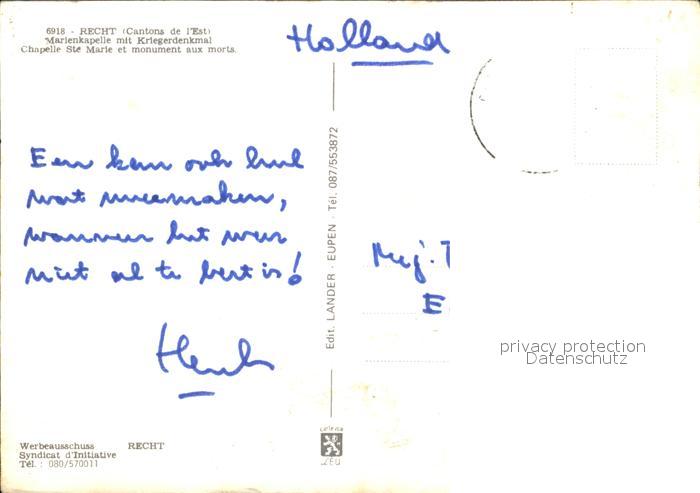 6918 - RECHT (Cantons de l'Est)
Marienkapelle mit Kriegerdenkmal
Chapelle Ste Marie et monument aux morts.
Holland
Een kan ook heel
wat meemaken,
wanneer het weer
niet al te best is!
Henk
Edit. LANDER - EUPEN - Tél. 087/553872
Mej. T
E
privacy protection
Datenschutz
Werbeausschuss RECHT
Syndicat d'Initiative
Tél. : 080/570011